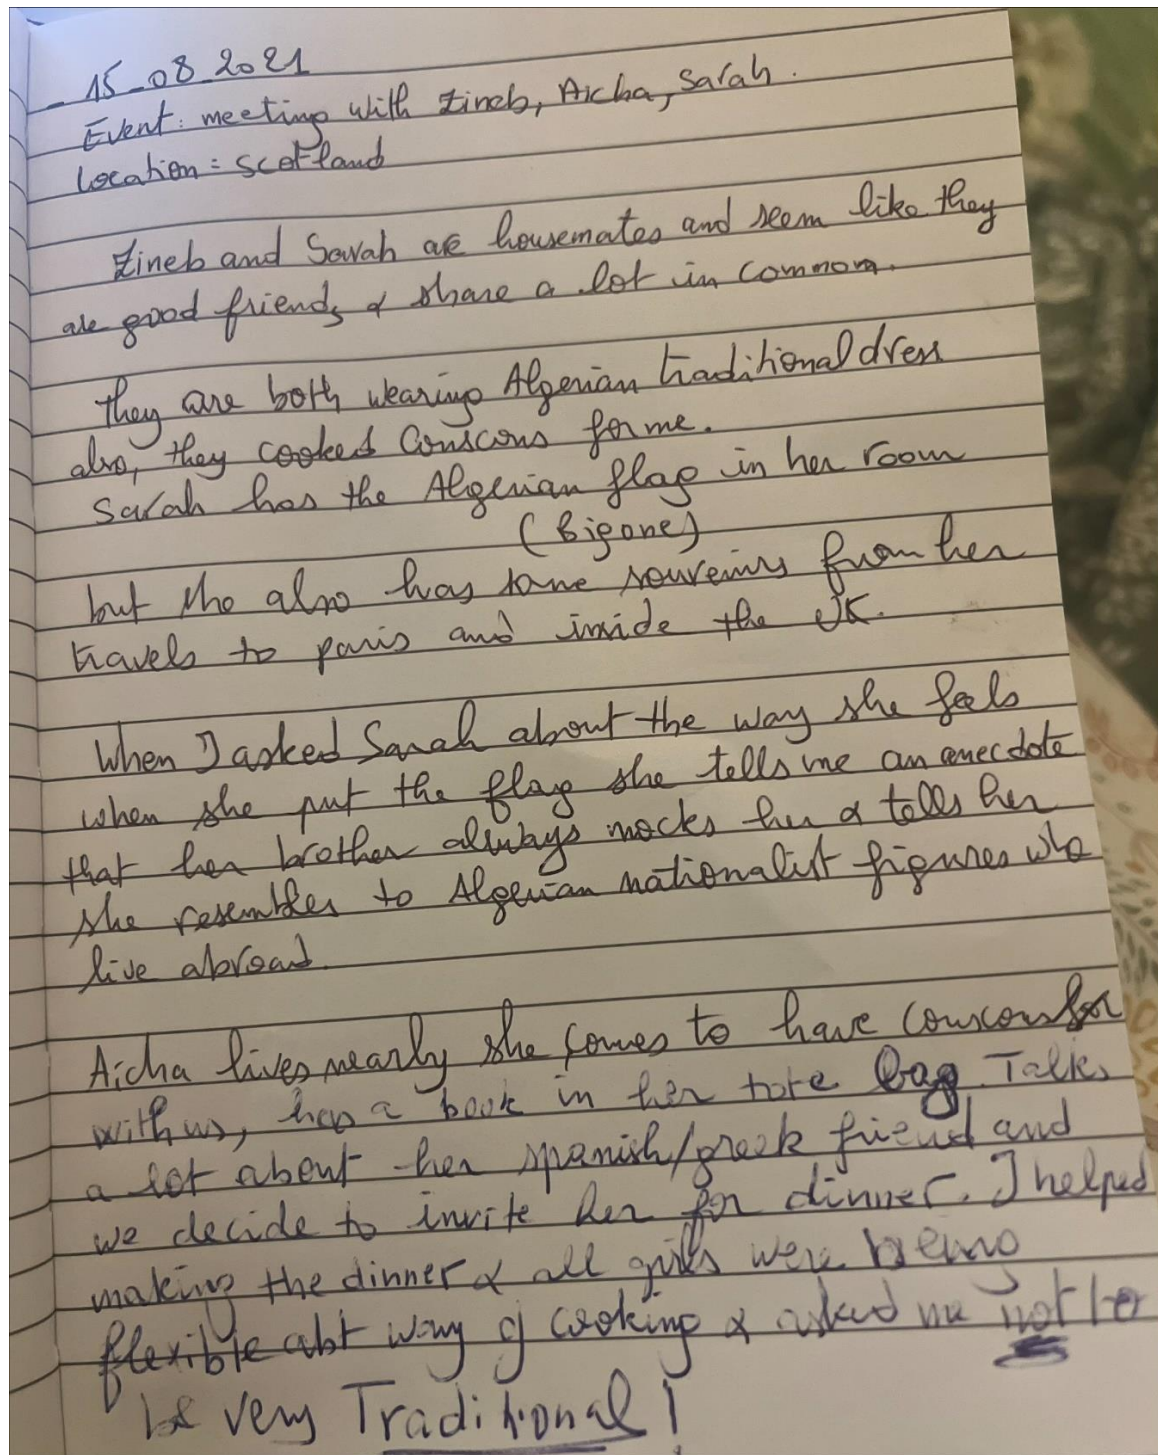 _ 15_08_2021
Event: meeting with Zineb, Aicha, Sarah.
Location = Scotland
Zineb and Sarah are housemates and seem like they
are good friends & share a lot in common.
they are both wearing Algerian traditional dress
also, they cooked Couscous for me.
Sarah has the Algerian flag in her room
(Big one)
but she also has some souvenirs from her
travels to paris and inside the UK.
When I asked Sarah about the way she feels
when she put the flag she tells me an anecdote
that her brother always mocks her & tells her
she resembles to Algerian nationalist figures who
live abroad.
Aicha lives nearly she comes to have couscous
with us, has a book in her tote bag. Talks
a lot about her spanish/greek friend and
we decide to invite her for dinner. I helped
making the dinner & all girls were being
flexible abt way of cooking & asked me not to
be very Traditional!